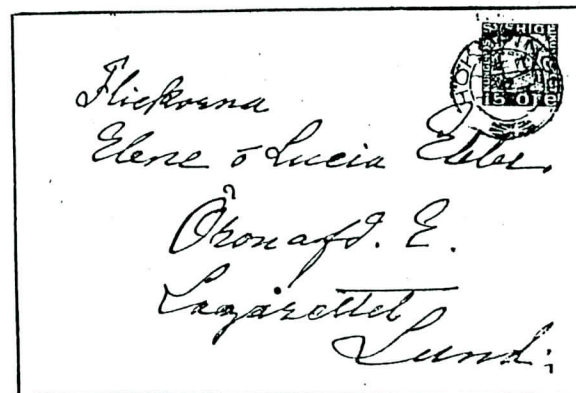 SVERIGE
15 ÖRE
Flickorna
Elene o Lucia Ebbe.
Öronafd. E.
Lazarettet
Lund.